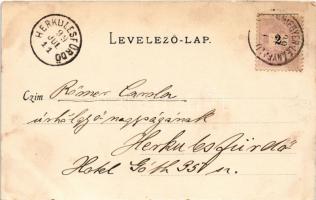 HERKULESFÜRDŐ
99
JUL
11
LEVELEZŐ-LAP.
2
Czim Römer Carola
úrhölgyő nagyságának
Herkulesfürdő
Hotel Góth 35 u.